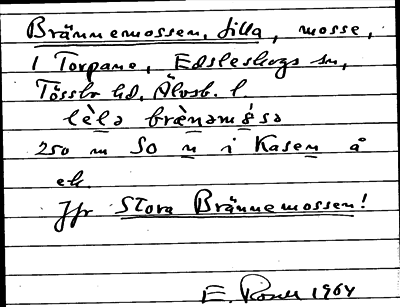 Brännemossen, Lilla, mosse,
i Torpane, Edsleskogs sn,
Tösslo hd, Älvsb. l
lèlə brænəmåsə
250 m SO n i Kasen å
ek.
Jfr Stora Brännemossen!
E. 1964